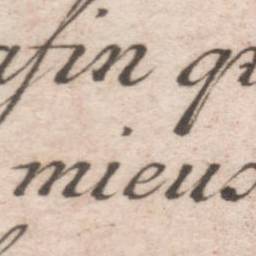 afin qu
mieux